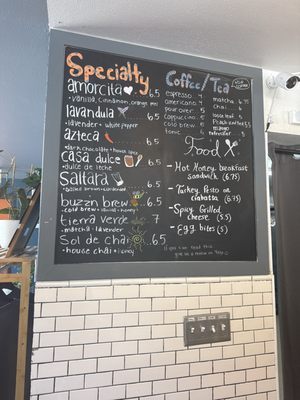 Specialty
amorcita 6.5
• vanilla, cinnamon, orange
lavandula 6.5
lavender • white pepper
azteca 6.5
• dark chocolate • house
casa dulce 6.5
• dulce de leche
Saltara 6.5
buzzn brew 6.5
• cold brew • honey
tierra verde 7
• matcha • lavender
Sol de chai 6.5
• house chai • honey
Coffee/Tea
espresso 4
americano 4
pour over 5
cappuccino 5
cold brew 5
tonic
matcha 6
chai
loose leaf
Food
- Hot Honey breakfast
sandwich (6.75)
- Turkey Pesto on
ciabatta (6.75)
- Spicy Grilled
cheese (5.5)
- Egg bites (5)
if you can read this
give us a review on